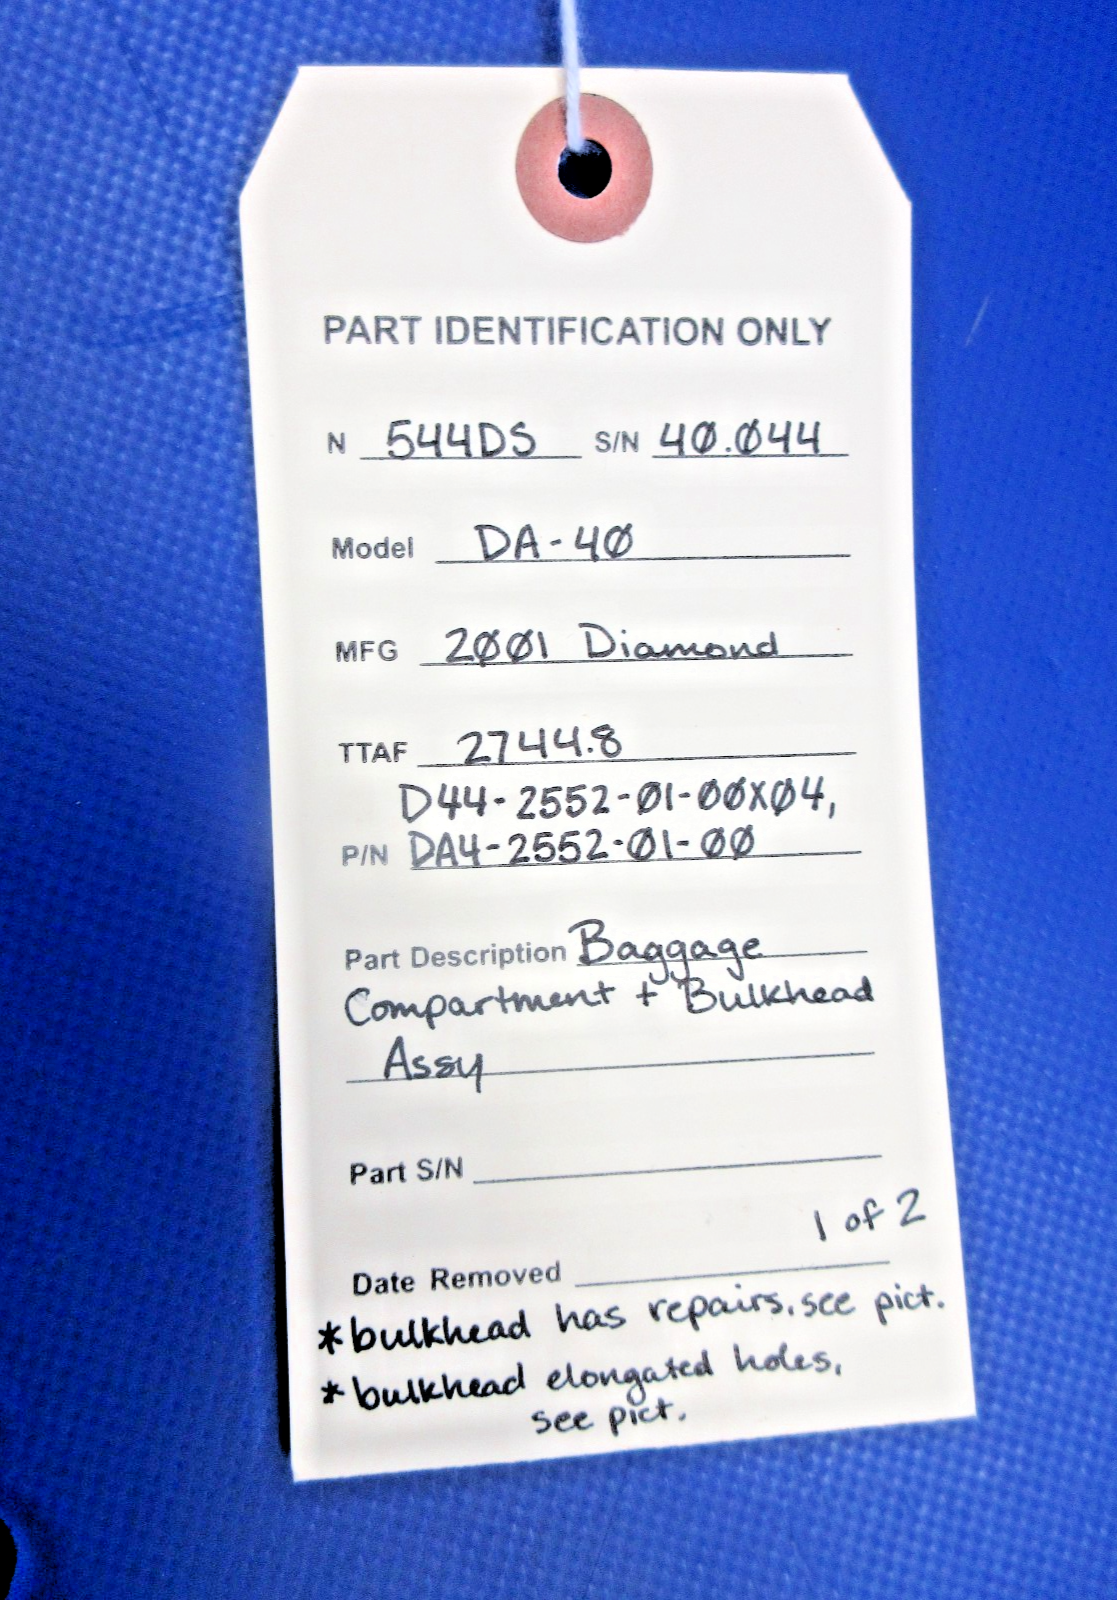 PART IDENTIFICATION ONLY
N 544DS S/N 40.044
Model DA-40
MFG 2001 Diamond
TTAF 2744.8
D44-2552-01-00X04,
P/N DA4-2552-01-00
Part Description Baggage
Compartment + Bulkhead
Assy
Part S/N
1 of 2
Date Removed
*bulkhead has repairs. see pict.
*bulkhead elongated holes,
see pict.